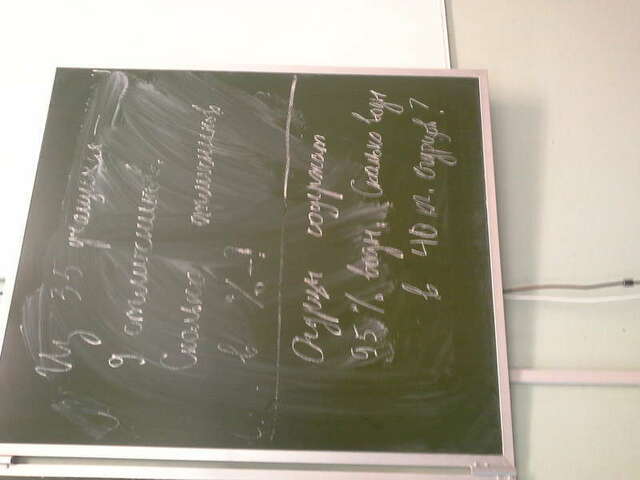 Из 35 учащихся –
9 отличников.
Сколько отличников
в % – ?
Огурцы содержат
95% воды. Сколько воды
в 40 кг. огурцов?